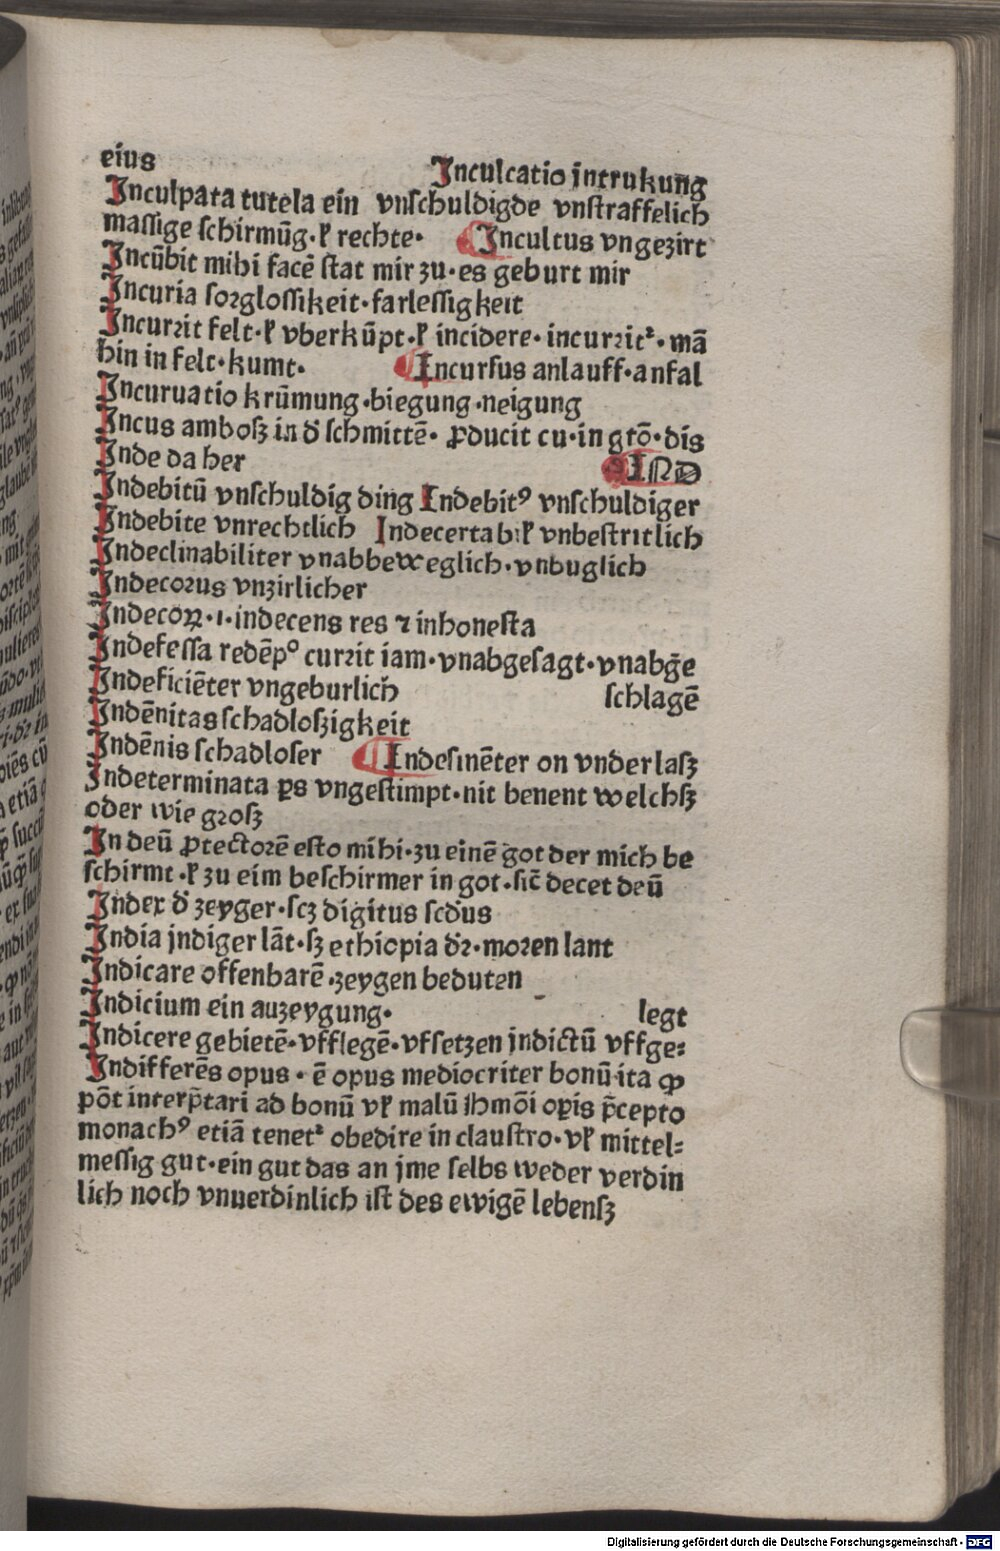 eius Inculcatio jntrukung
Inculpata tutela ein vnſchuldigde vnſtraffelich
maſſige ſchirmūg·ꝉ rechte· Incultus vngezirt
Incūbit mihi facē ſtat mir zu·es geburt mir
Incuria ſorgloſſikeit·farleſſigkeit
Incurrit felt·ꝉ vberkūpt·ꝉ incidere·incurritᷣ·mā
hin in felt·kumt· Incurſus anlauff·anfal
Incuruatio krūmung·biegung·neigung
Incus amboſz in d̓ ſchmittē· ꝓducit cu·in gtō·dis
Inde da her IND
Indebitū vnſchuldig ding Indebitꝰ vnſchuldiger
Indebite vnrechtlich Indecertabiꝉ vnbeſtritlich
Indeclinabiliter vnabbeweglich·vnbuglich
Indecorus vnzirlicher
Indecoꝝ·i·indecens res ⁊ inhoneſta
Indefeſſa redēpº currit iam·vnabgeſagt·vnabḡe
Indeficiēter vngeburlich ſchlagē
Indēnitas ſchadloſzigkeit
Indēnis ſchadloſer Indeſinēter on vnderlaſz
Indeterminata ꝑs vngeſtimpt·nit benent welchſz
oder wie groſz
In deū ꝓtectorē eſto mihi·zu einē got der mich be
ſchirmt·ꝉ zu eim beſchirmer in got·ſic̄ decet deū
Index d̓ zeyger·ſcz digitus ſcd̓us
India jndiger lāt·ſz ethiopia d̓r·moren lant
Indicare offenbarē·zeygen beduten
Indicium ein auzeygung· legt
Indicere gebietē·vfflegē·vffſetzen jndictū vffge⸗
Indifferēs opus·ē opus mediocriter bonū·ita ꝙ
pōt interp̄tari ad bonū vꝉ malū ihmōi oꝑis p̄cepto
monachꝰ etiā tenetᷣ obedire in clauſtro·vꝉ mittel⸗
meſſig gut·ein gut das an jme ſelbs weder verdin
lich noch vnuerdinlich iſt des ewigē lebenſz
Digitalisierung gefördert durch die Deutsche Forschungsgemeinschaft - DFG